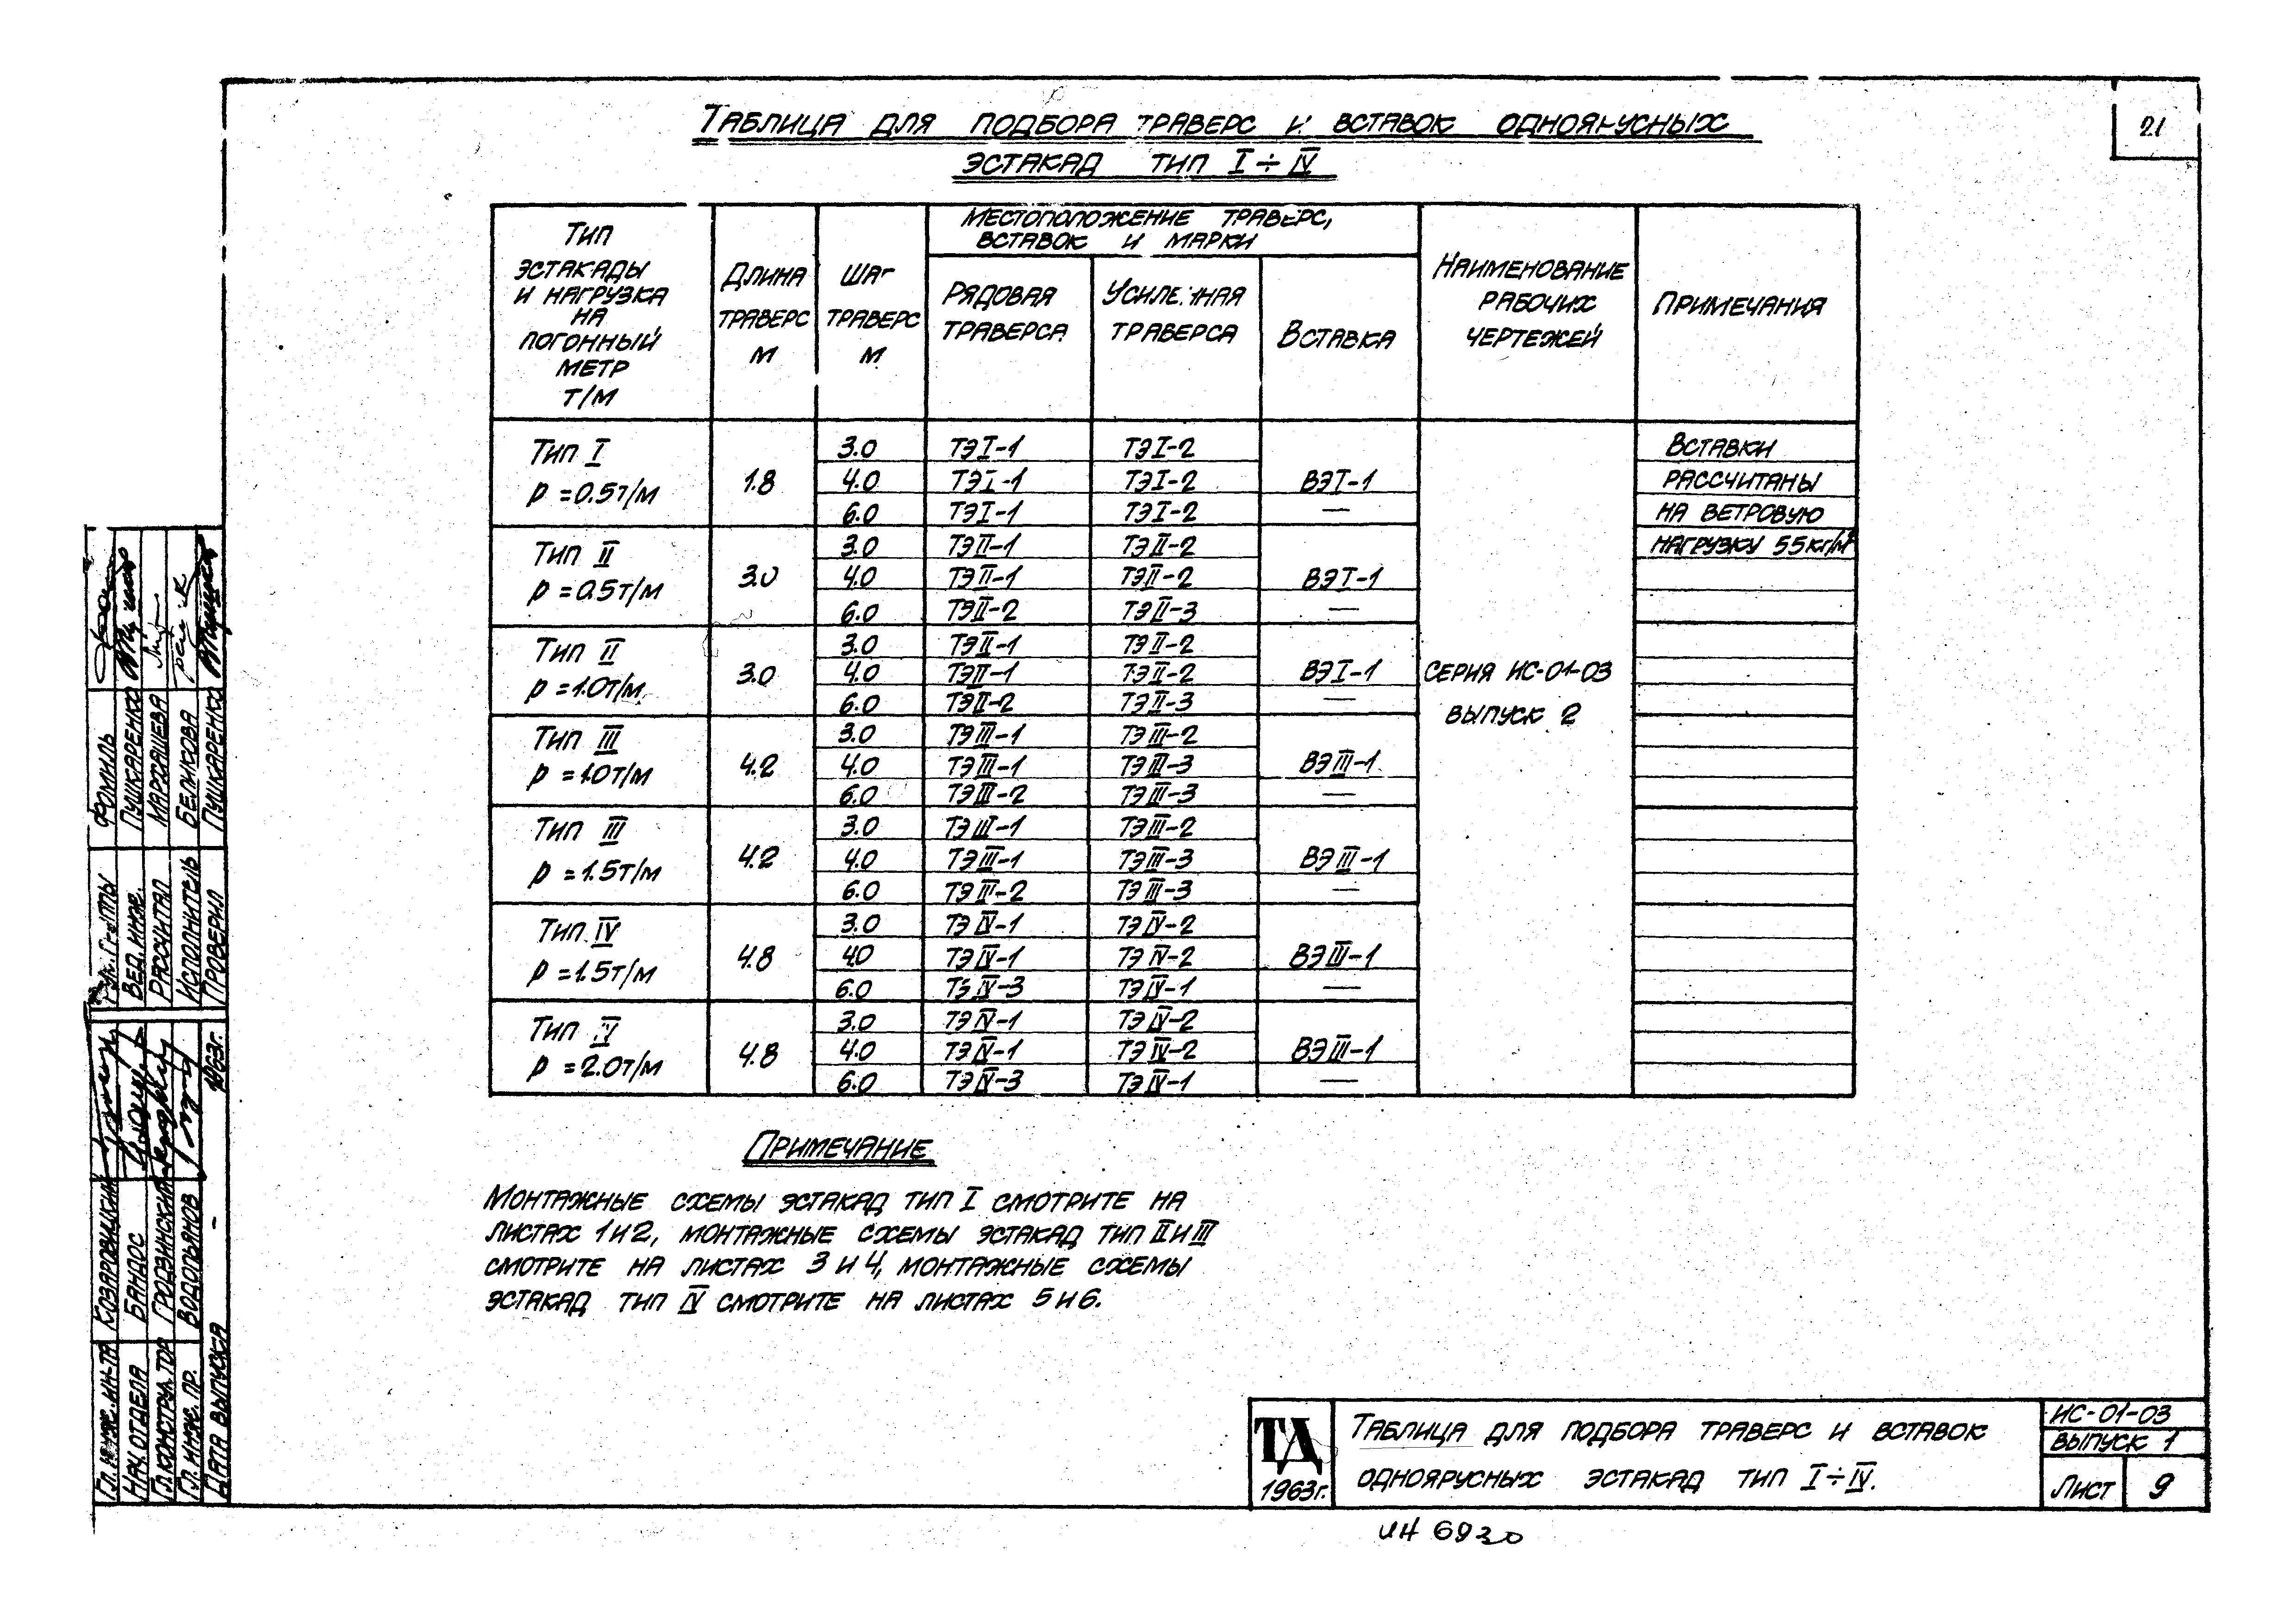 21
Таблица для подбора траверс и вставок одноярусных
эстакад тип I÷IV
Тип
эстакады
и нагрузка
на
погонный
метр
т/м
Длина
траверс
м
Шаг
траверс
м
Местоположение траверс,
вставок и марки
Рядовая
траверса
Усиленная
траверса
Вставка
Наименование
рабочих
чертежей
Примечания
Тип I
р = 0.5т/м
1.8
3.0 ТЭI-1 ТЭI-2
4.0 ТЭI-1 ТЭI-2 ВЭI-1
6.0 ТЭI-1 ТЭI-2 —
Тип II
р = 0.5т/м
3.0
3.0 ТЭII-1 ТЭII-2
4.0 ТЭII-1 ТЭII-2 ВЭI-1
6.0 ТЭII-2 ТЭII-3 —
Тип II
р = 1.0т/м
3.0
3.0 ТЭII-1 ТЭII-2
4.0 ТЭII-1 ТЭII-2 ВЭI-1
6.0 ТЭII-2 ТЭII-3 —
Тип III
р = 1.0т/м
4.2
3.0 ТЭIII-1 ТЭIII-2
4.0 ТЭIII-1 ТЭIII-3 ВЭIII-1
6.0 ТЭIII-2 ТЭIII-3 —
Тип III
р = 1.5т/м
4.2
3.0 ТЭIII-1 ТЭIII-2
4.0 ТЭIII-1 ТЭIII-3 ВЭIII-1
6.0 ТЭIII-2 ТЭIII-3 —
Тип IV
р = 1.5т/м
4.8
3.0 ТЭIV-1 ТЭIV-2
4.0 ТЭIV-1 ТЭIV-2 ВЭIII-1
6.0 ТЭIV-3 ТЭIV-1 —
Тип IV
р = 2.0т/м
4.8
3.0 ТЭIV-1 ТЭIV-2
4.0 ТЭIV-1 ТЭIV-2 ВЭIII-1
6.0 ТЭIV-3 ТЭIV-1 —
серия ИС-01-03
выпуск 2
Вставки
рассчитаны
на ветровую
нагрузку 55кг/м²
Примечание
Монтажные схемы эстакад тип I смотрите на
листах 1 и 2, монтажные схемы эстакад тип II и III
смотрите на листах 3 и 4, монтажные схемы
эстакад тип IV смотрите на листах 5 и 6.
ТД
1963г.
Таблица для подбора траверс и вставок
одноярусных эстакад тип I÷IV.
ИС-01-03
выпуск 1
Лист 9
ин 6930
Рук. Группы Фомиль
Вед. инж. Пушкаренко
Рассчитал Маргашева
Исполнитель Беликова
Проверил Пушкаренко
Гл. инж. ин-та Козаровицкий
Нач. отдела Бандос
Гл. конструктор Гродзинский
Гл. инж. пр. Водопьянов
Дата выпуска - 1963г.